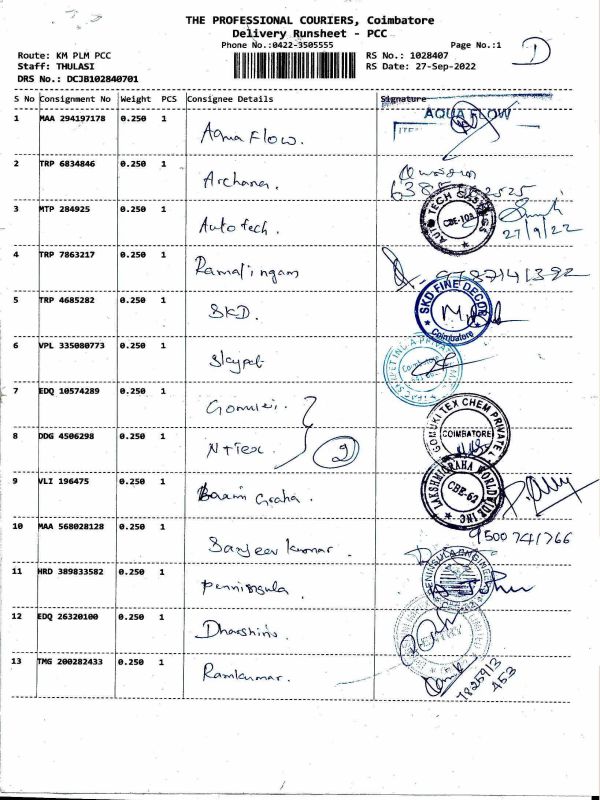 THE PROFESSIONAL COURIERS, Coimbatore
Delivery Runsheet - PCC
Phone No.:0422-3505555
Page No.:1
Route: KM PLM PCC
RS No.: 1028407
Staff: THULASI
RS Date: 27-Sep-2022
DRS No.: DCJB102840701
S No Consignment No Weight PCS Consignee Details Signature
1 MAA 294197178 0.250 1 Aqua Flow. AQUA FLOW
2 TRP 6834846 0.250 1 Archana.
3 MTP 284925 0.250 1 Autotech. AUTO TECH CASTINGS CBE-103 27/9/22
4 TRP 7863217 0.250 1 Ramalingam 9787141392
5 TRP 4685282 0.250 1 SKD. SKD FINE DECOR Coimbatore
6 VPL 335080773 0.250 1 Skypet
7 EDQ 10574289 0.250 1 GOMUKI TEX CHEM PRIVATE COIMBATORE
8 DDG 4506298 0.250 1 N+Tex. 2
9 VLI 196475 0.250 1 Graha. LAKSHMIGRAHA WORLDWIDE INC CBE-62
10 MAA 568028128 0.250 1 Sanjeev kumar. 9500741766
11 HRD 389833582 0.250 1 Penninsula. PENINSULA ENGINEE
12 EDQ 26320100 0.250 1 Dharshini.
13 TMG 200282433 0.250 1 Ramkumar.